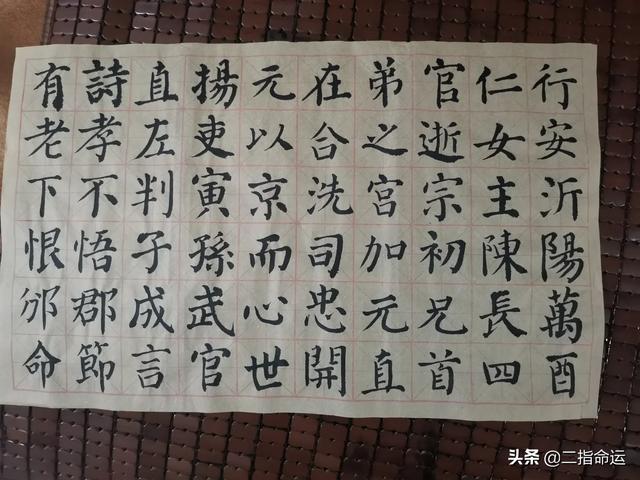 行安沂陽萬酉
仁女主陳長四
官逝宗初兄首
弟之宮加元直
在合洗司忠開
元以京而心世
揚吏寅孫武官
直左判子成言
詩孝不悟郡節
有老下恨邠命
头条 @二指命运